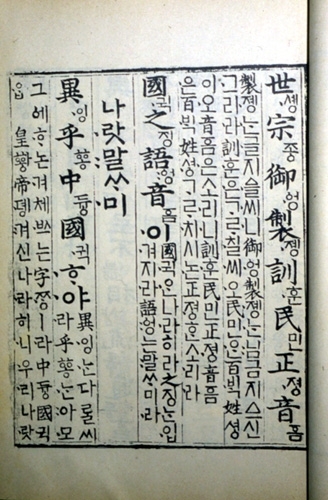 世솅宗종御엉製졩訓훈民민正졍音ᅙᅳᆷ
製졩는글지ᅀᅳᆯ씨니御엉製졩는님금지ᅀᅳ샨
그리라訓훈은ᄀᆞᄅᆞ칠씨오民민ᄋᆞᆫ百ᄇᆡᆨ姓셩
이오音ᅙᅳᆷ은소리니訓훈民민正졍音ᅙᅳᆷ
은百ᄇᆡᆨ姓셩ᄀᆞᄅᆞ치시논正졍ᄒᆞᆫ소리라
國귁之징語엉音ᅙᅳᆷ이
國귁ᄋᆞᆫ나라히라之징ᄂᆞᆫ입
겨지라語엉는말ᄊᆞ미라
나랏말ᄊᆞ미
異잉乎ᅘᅩᆼ中듕國귁ᄒᆞ야
異잉는다ᄅᆞᆯ씨
라乎ᅘᅩᆼ는아모
그ᅌᅦᄒᆞ논겨체ᄡᅳ는字ᄍᆞᆼㅣ라中듕國귁
ᄋᆞᆫ皇ᅘᅪᆼ帝뎽겨신나라히니우리나랏